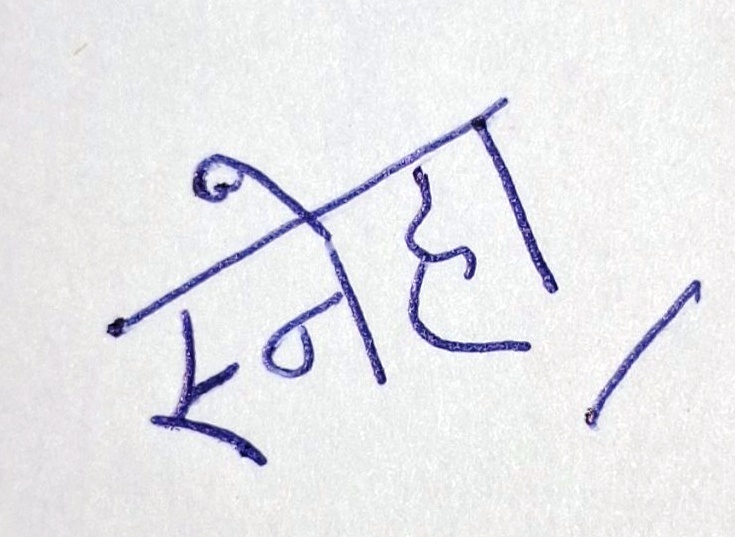 स्नेहा /